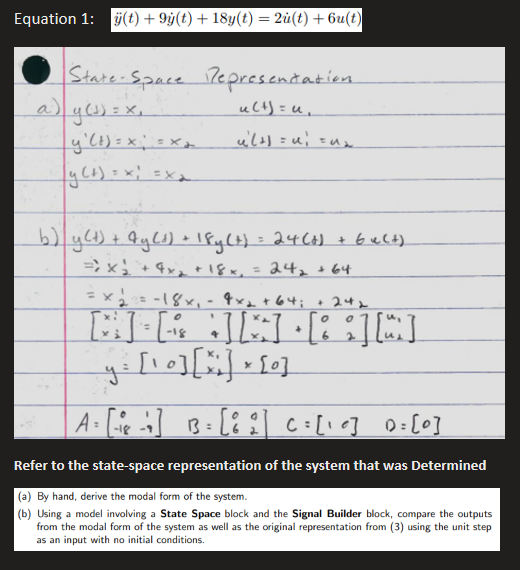 Equation 1: ÿ(t) + 9ẏ(t) + 18y(t) = 2u̇(t) + 6u(t)
State-Space Representation
a) y(t) = x₁ u(t) = u₁
y'(t) = x₁' = x₂ u'(t) = u₁' = u₂
y(t) = x₁' = x₂
b) y(t) + 9y(t) + 18y(t) = 24(t) + 6u(t)
⇒ x₂' + 9x₂ + 18x₁ = 24₂ + 64
= x₂' = -18x₁ - 9x₂ + 64₁ + 24₂
[x₁' x₂'] = [0 1 -18 9] [x₂ x₂] + [0 0 6 2] [u₁ u₂]
y = [1 0] [x₁ x₂] + [0]
A = [0 1 -18 -9] B = [0 0 6 2] C = [1 0] D = [0]
Refer to the state-space representation of the system that was Determined
(a) By hand, derive the modal form of the system.
(b) Using a model involving a State Space block and the Signal Builder block, compare the outputs
from the modal form of the system as well as the original representation from (3) using the unit step
as an input with no initial conditions.